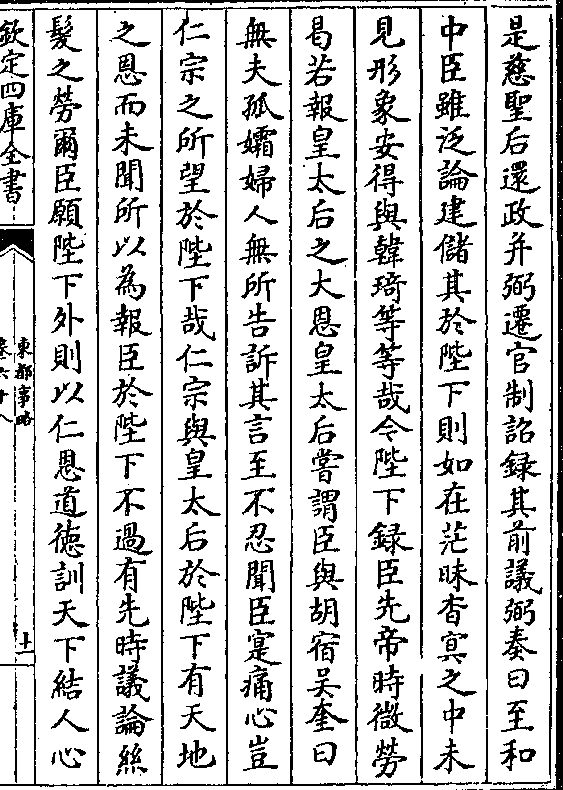 是慈聖后還政并弼遷官制詔録其前議弼奏曰至和
中臣雖泛論建儲其於陛下則如在茫昧杳冥之中未
見形象安得與韓琦等等哉令陛下録臣先帝時微勞
曷若報皇太后之大恩皇太后嘗謂臣與胡宿吴奎曰
無夫孤孀婦人無所告訴其言至不忍聞臣寔痛心豈
仁宗之所望於陛下哉仁宗與皇太后於陛下有天地
之恩而未聞所以為報臣於陛下不過有先時議論絲
髮之勞爾臣願陛下外則以仁恩道徳訓天下結人心
欽定四庫全書
東都事略
卷六十八
十一